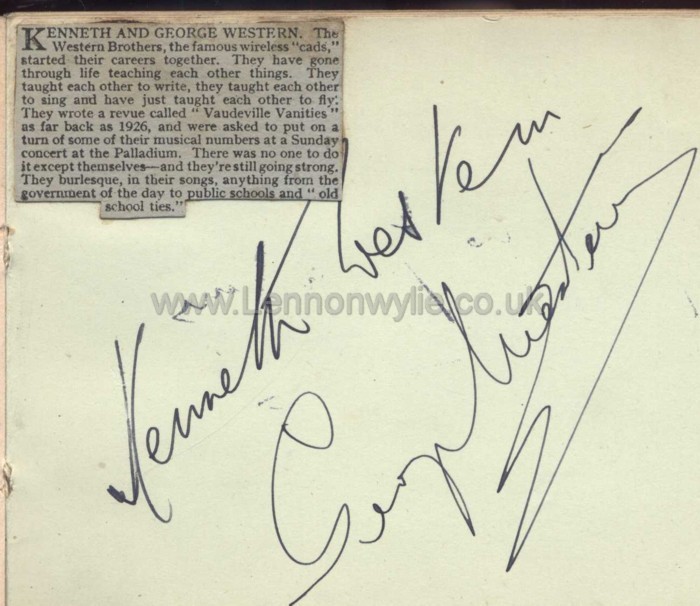 KENNETH AND GEORGE WESTERN. The
Western Brothers, the famous wireless "cads,"
started their careers together. They have gone
through life teaching each other things. They
taught each other to write, they taught each other
to sing and have just taught each other to fly.
They wrote a revue called "Vaudeville Vanities"
as far back as 1926, and were asked to put on a
turn of some of their musical numbers at a Sunday
concert at the Palladium. There was no one to do
it except themselves—and they're still going strong.
They burlesque, in their songs, anything from the
government of the day to public schools and "old
school ties."
Kenneth Western
www.Lennonwylie.co.uk
George Western